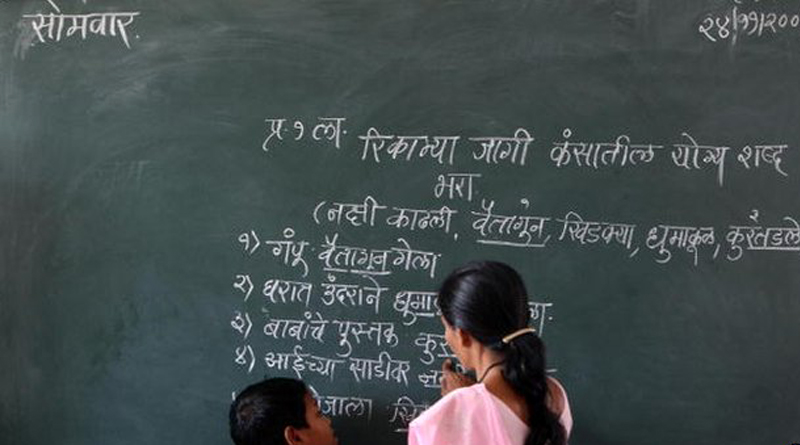 सोमवार.
२४/११/२००
प्र. १ ला. रिकाम्या जागी कंसातील योग्य शब्द
भरा.
(नक्षी काढली, वैतागून, खिडक्या, धुमाकूळ, कुरतडले
१) गंपू वैतागून गेला
२) घरात उंदराने धुमा ला.
३) बाबांचे पुस्तक कुर
४) आईच्या साडीवर न
जाला खि